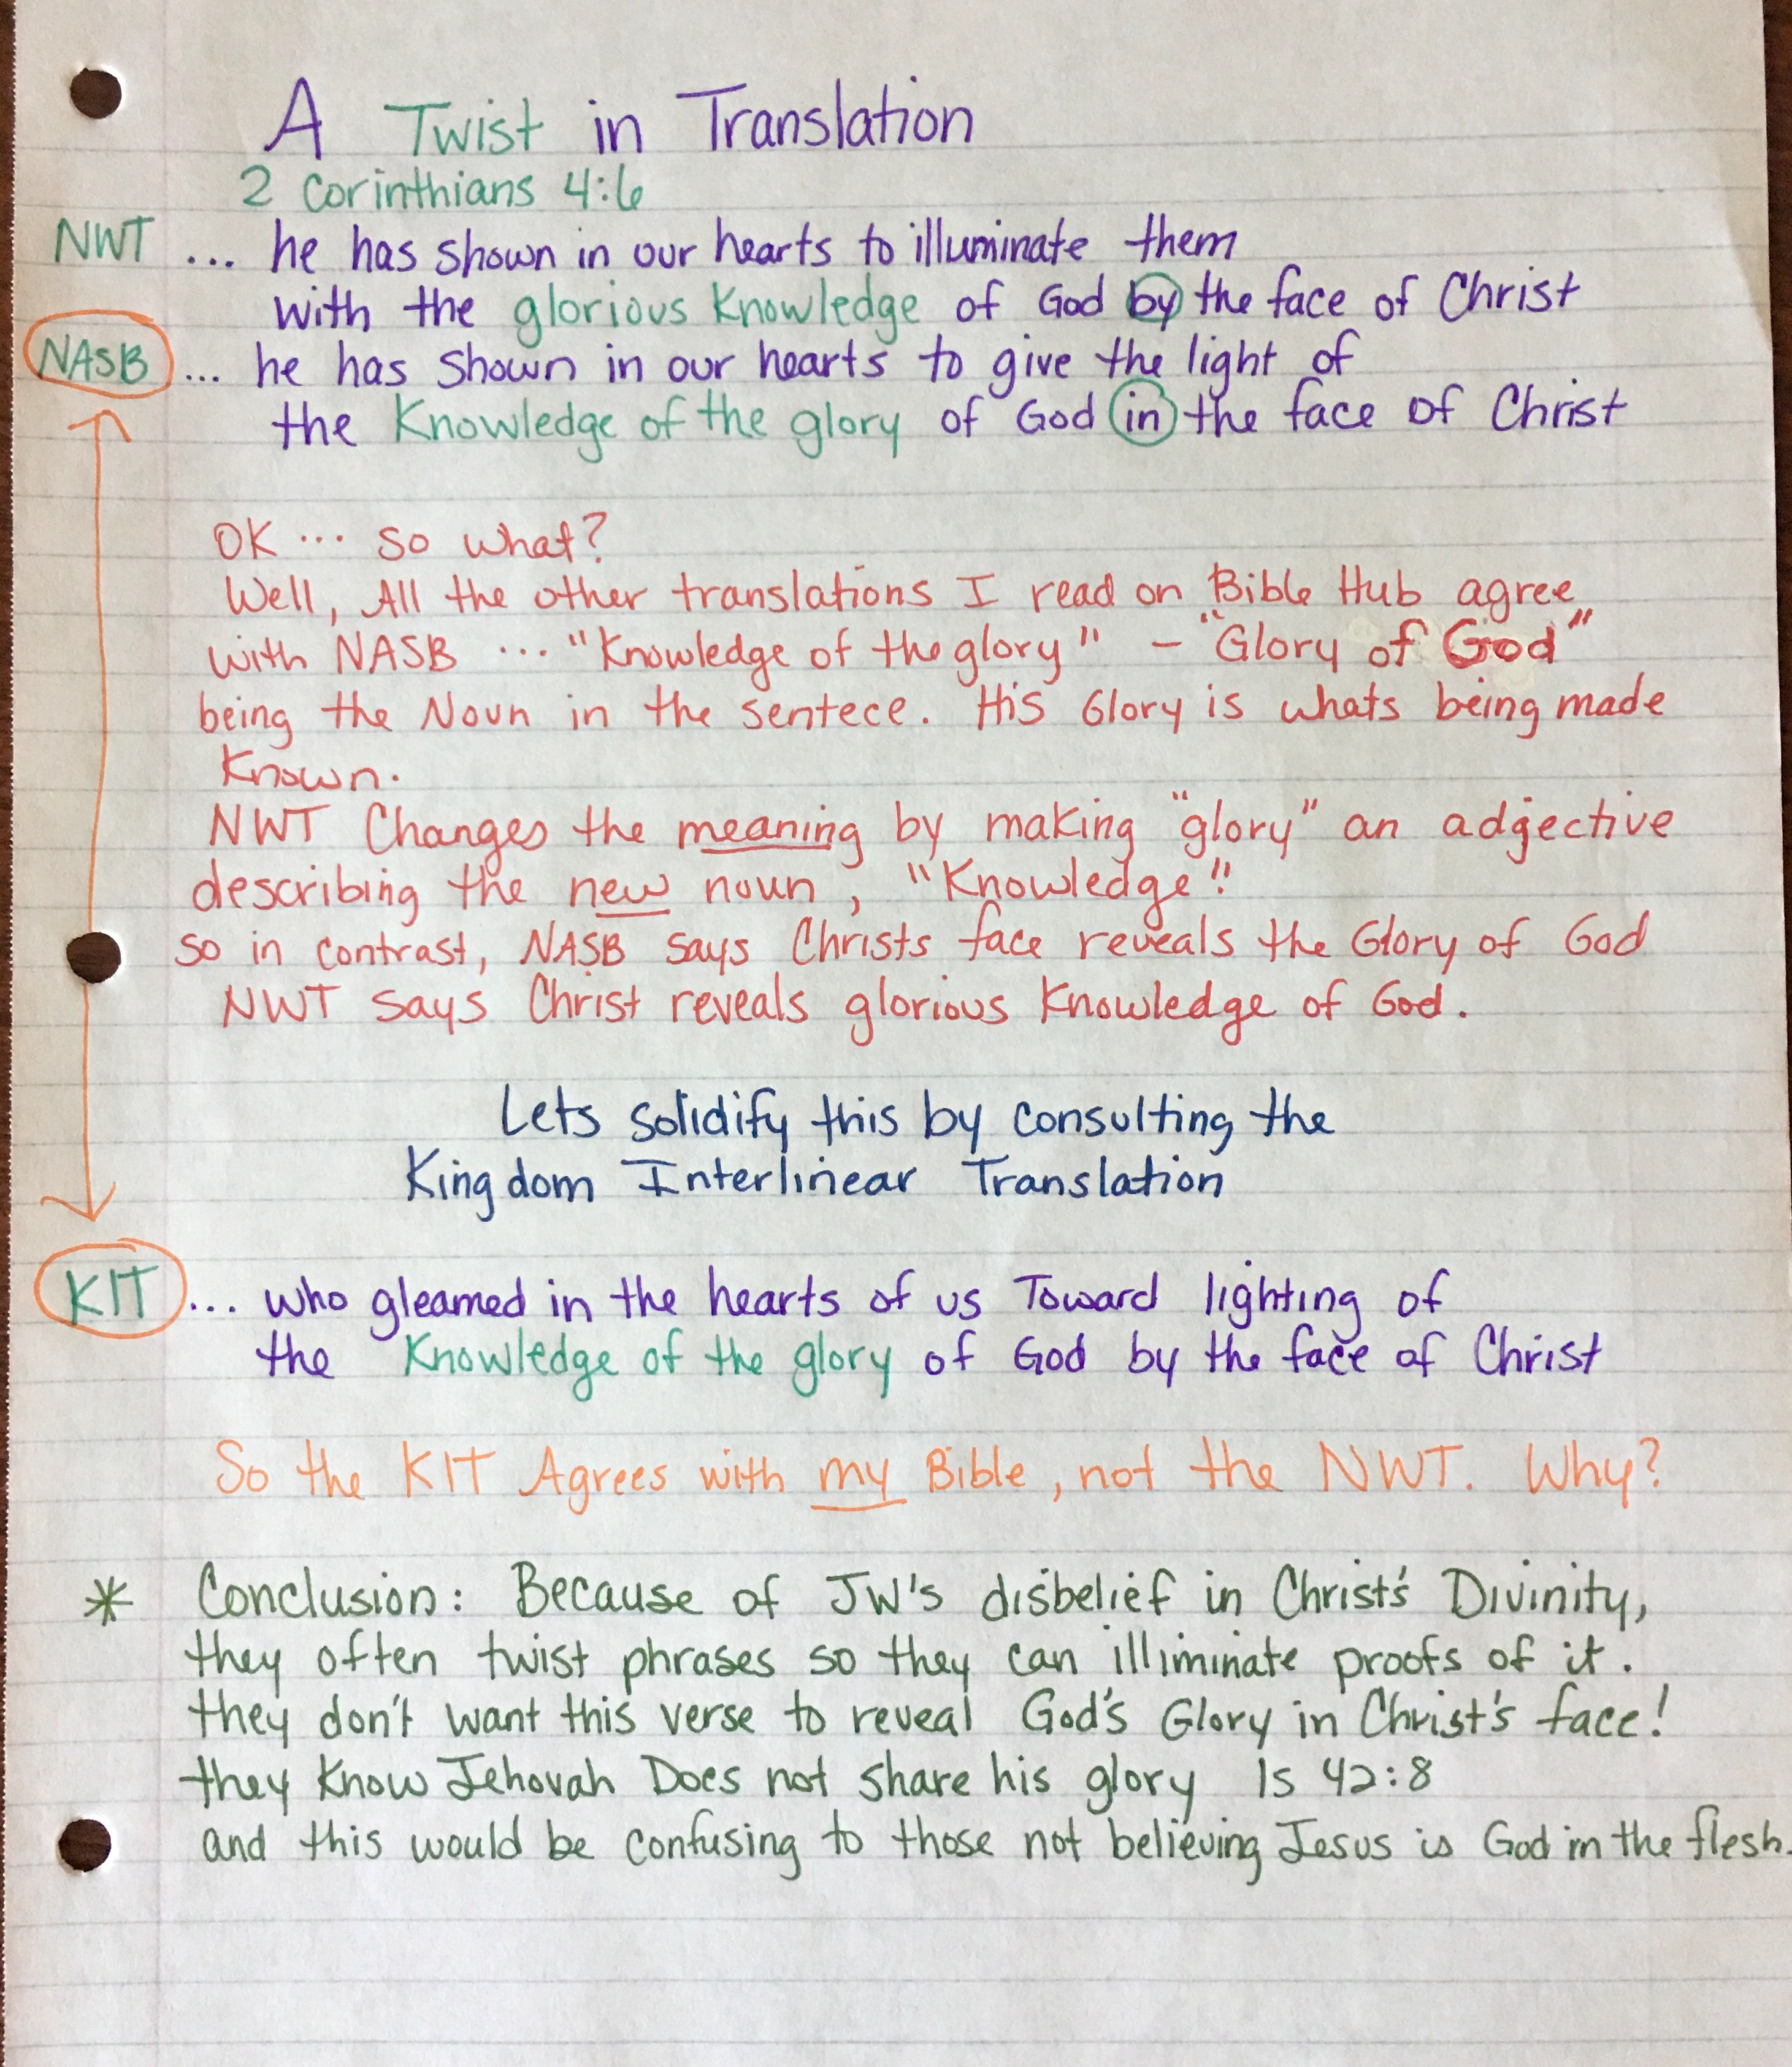 A Twist in Translation
2 Corinthians 4:6
NWT ... he has shown in our hearts to illuminate them
with the glorious Knowledge of God by the face of Christ
NASB ... he has shown in our hearts to give the light of
the Knowledge of the glory of God in the face of Christ
OK ... so what?
Well, All the other translations I read on Bible Hub agree
with NASB ... "Knowledge of the glory" - "Glory of God"
being the Noun in the sentece. His Glory is whats being made
Known.
NWT Changes the meaning by making "glory" an adjective
describing the new noun, "Knowledge"!
so in contrast, NASB says Christs face reveals the Glory of God
NWT says Christ reveals glorious Knowledge of God.
Lets solidify this by consulting the
Kingdom Interlinear Translation
KIT ... who gleamed in the hearts of us Toward lighting of
the Knowledge of the glory of God by the face of Christ
So the KIT Agrees with my Bible, not the NWT. Why?
* Conclusion: Because of JW's disbelief in Christ's Divinity,
they often twist phrases so they can illiminate proofs of it.
they don't want this verse to reveal God's Glory in Christ's face!
they Know Jehovah Does not share his glory Is 42:8
and this would be confusing to those not believing Jesus is God in the flesh.